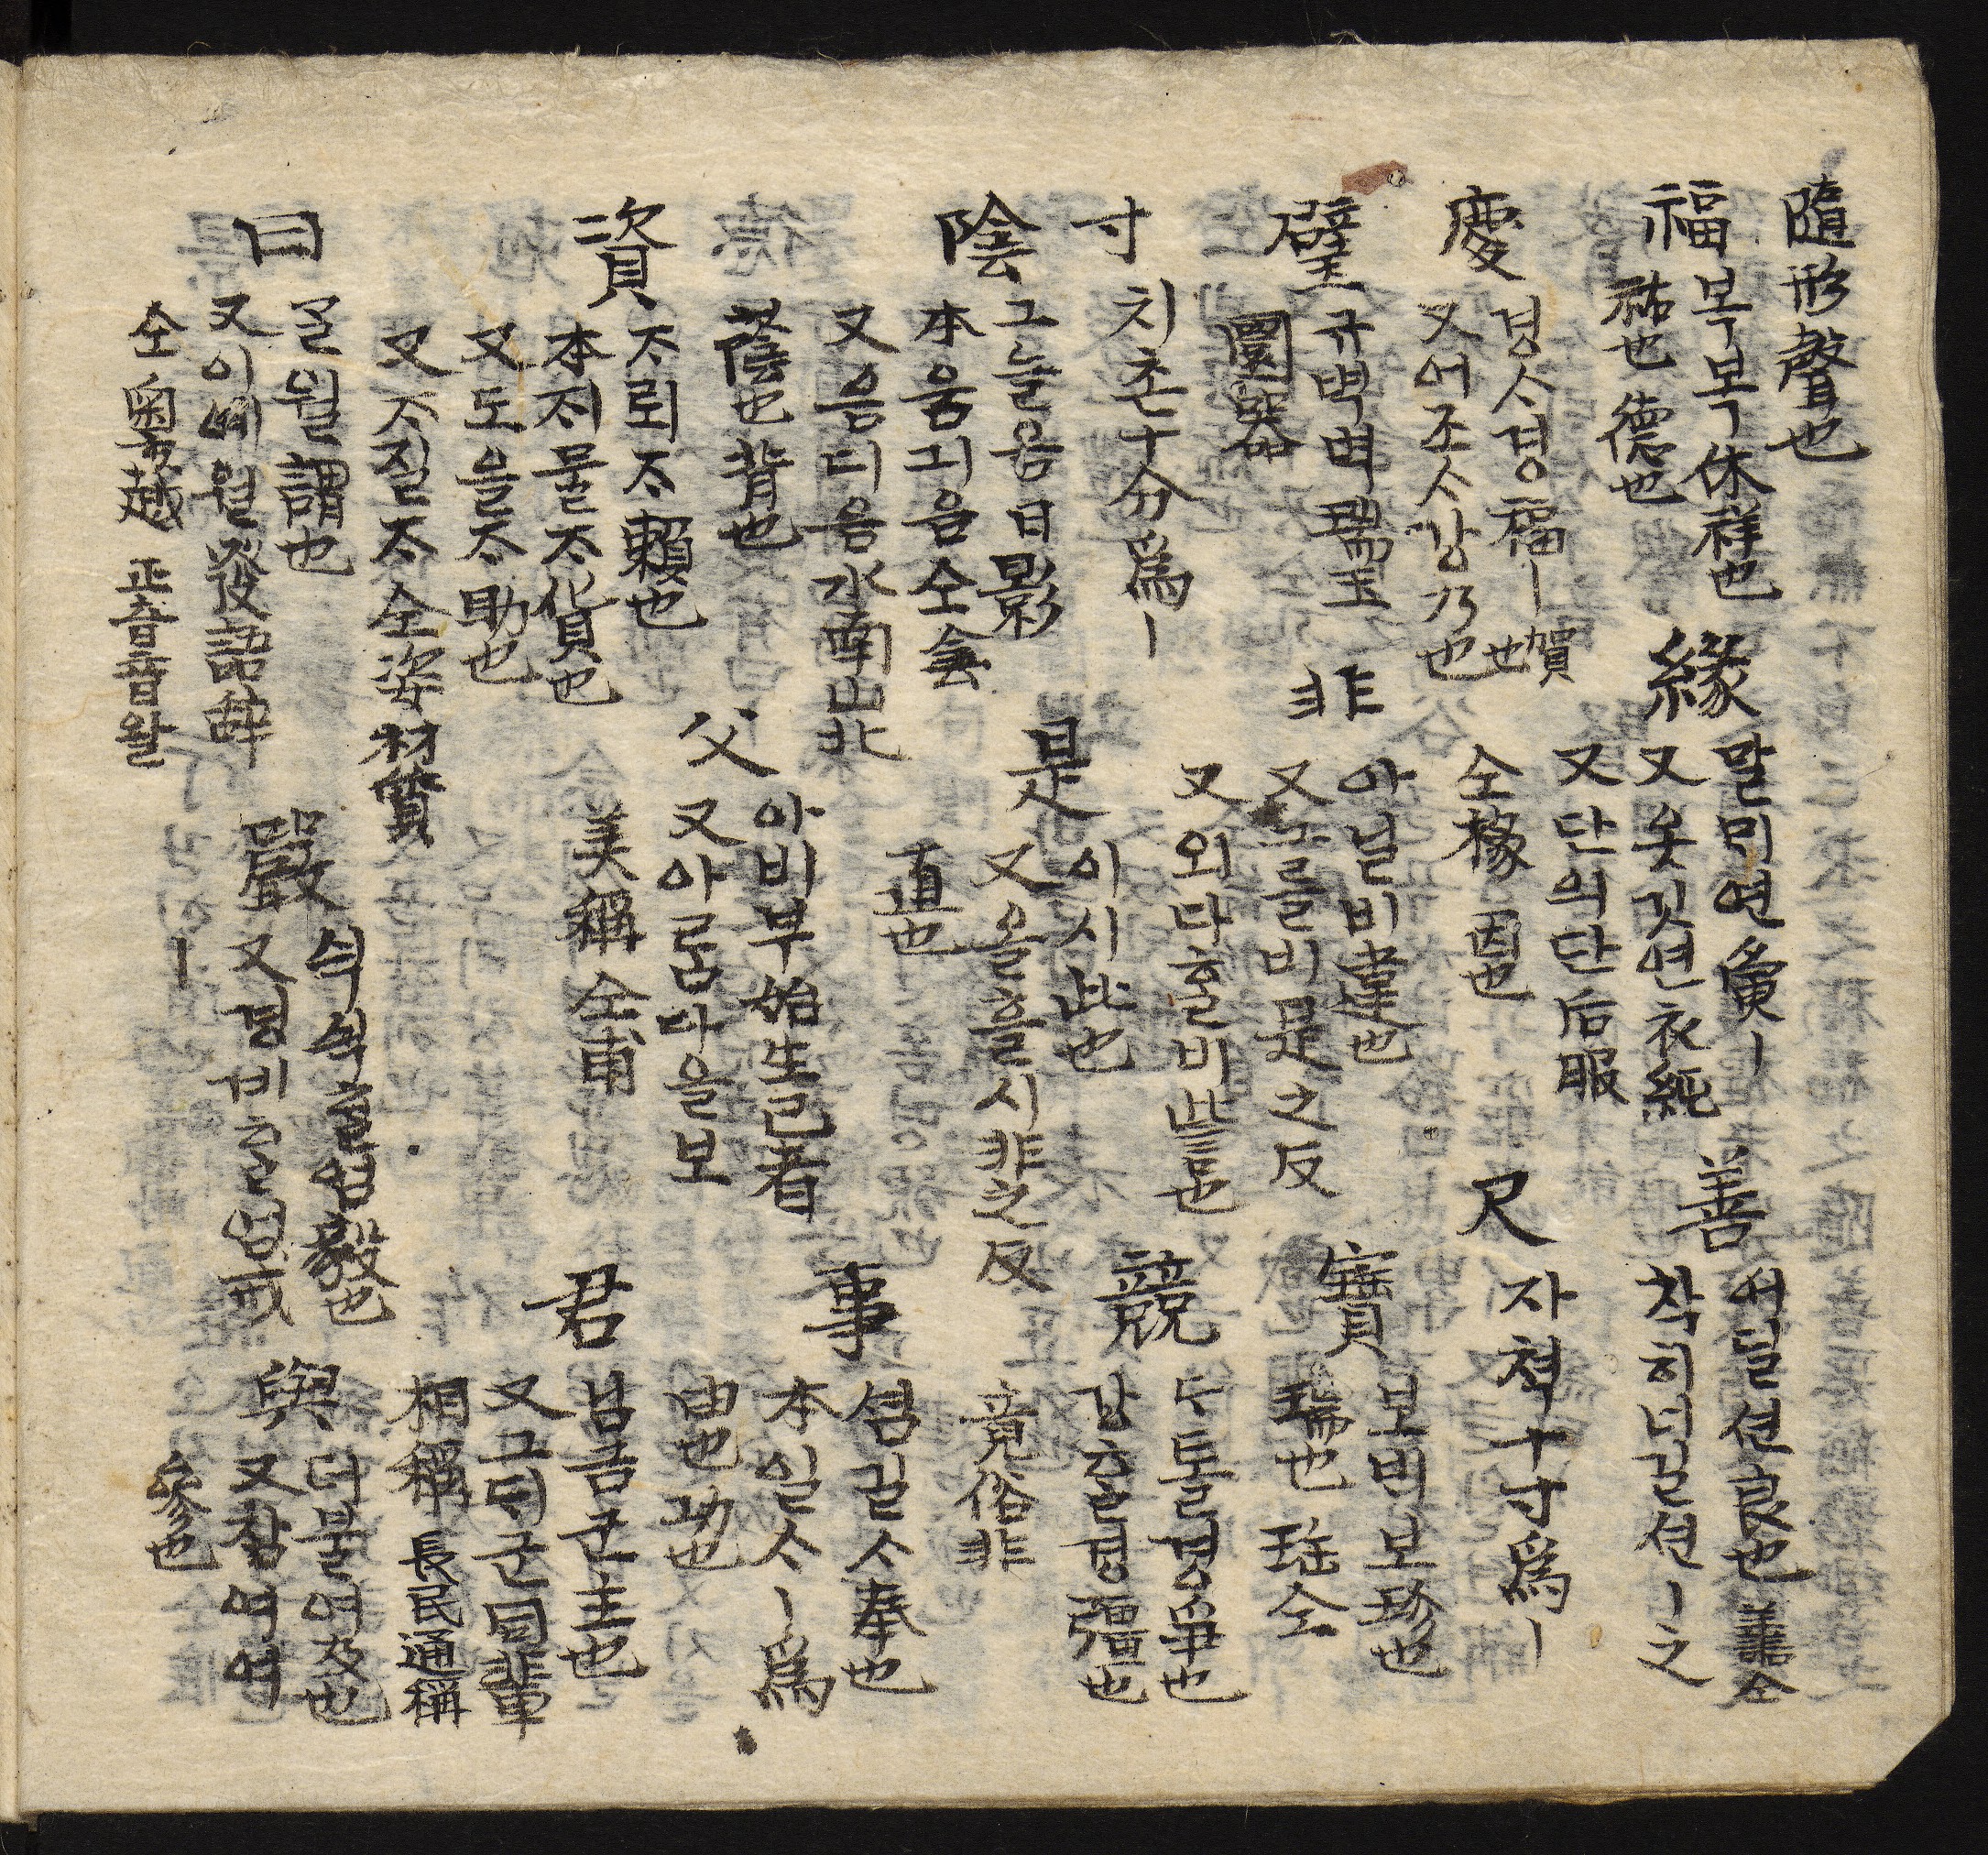 隨形聲也
福
복 복 休祥也
祐也 德也
緣
말믜 연 夤ㅣ
又 옷깃 연 衣純
又 단의 단 后服
仝椽 因也
善
어딜 션 良也 譱仝
착히 너길 션ㅣ之
慶
경ᄉᆞ 경 福ㅣ 賀也
又 어조ᄉᆞ 강 乃也
尺
자 쳑 十寸爲ㅣ
璧
규벽 벽 瑞玉
圜器
非
아닐 비 違也
又 그를 비 是之反
又 외다 홀 비 訾也
寶
보ᄇᆡ 보 珍也
瑞也 珤仝
寸
치 촌 十分爲ㅣ
陰
그늘 음 日影
本 움긔 음 仝侌
又 음디 음 水南山北
蔭也 背也
是
이 시 此也
又 올흘 시 非之反
直也
競
ᄃᆞ톨 경 爭也
갑흘 경 彊也
竟俗非
資
ᄌᆞ뢰 ᄌᆞ 賴也
本 ᄌᆡ물 ᄌᆞ 貨也
又 도을 ᄌᆞ 助也
又 ᄌᆞ질 ᄌᆞ 仝姿 材質
父
아비 부 始生己者
又 아ᄅᆞᆷ다을 보
美稱 仝甫
事
셤길 ᄉᆞ 奉也
本 일 ᄉᆞㅣ爲
由也 功也
君
님금 군 主也
又 그ᄃᆡ 군 同輩
相稱 長民通稱
曰
ᄀᆞᆯ 월 謂也
又 이예 월 發語辭
仝粤越 正音音왈
嚴
싁싁ᄒᆞᆯ 엄 毅也
又 경비ᄒᆞᆯ 엄 戒
ㅣ
與
더불 여 及也
又 참여 여
參也